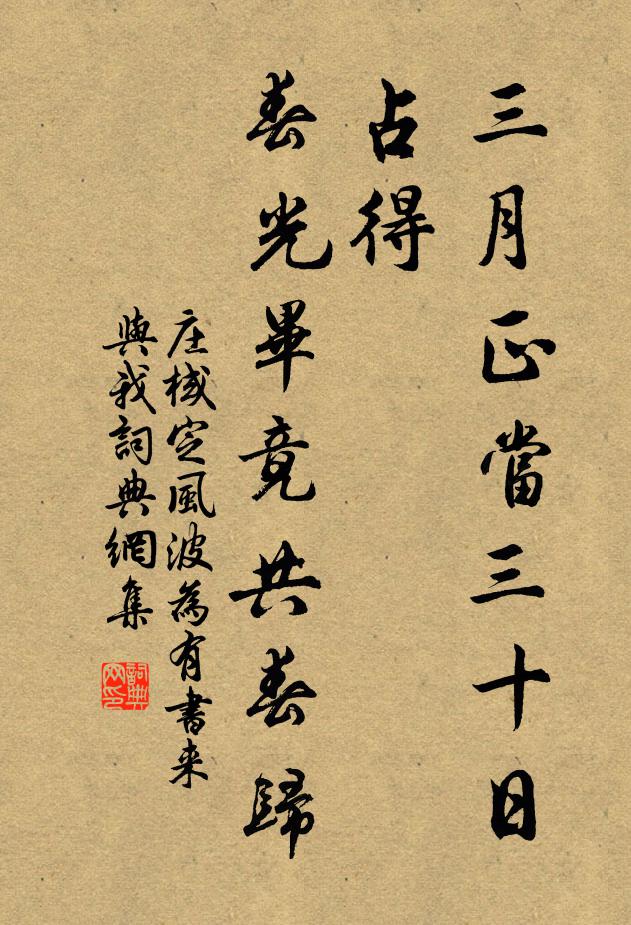 三月正當三十日
占得
春光畢竟共春歸
庄棫定風波為有書来
與我詞典網集
詞典網印